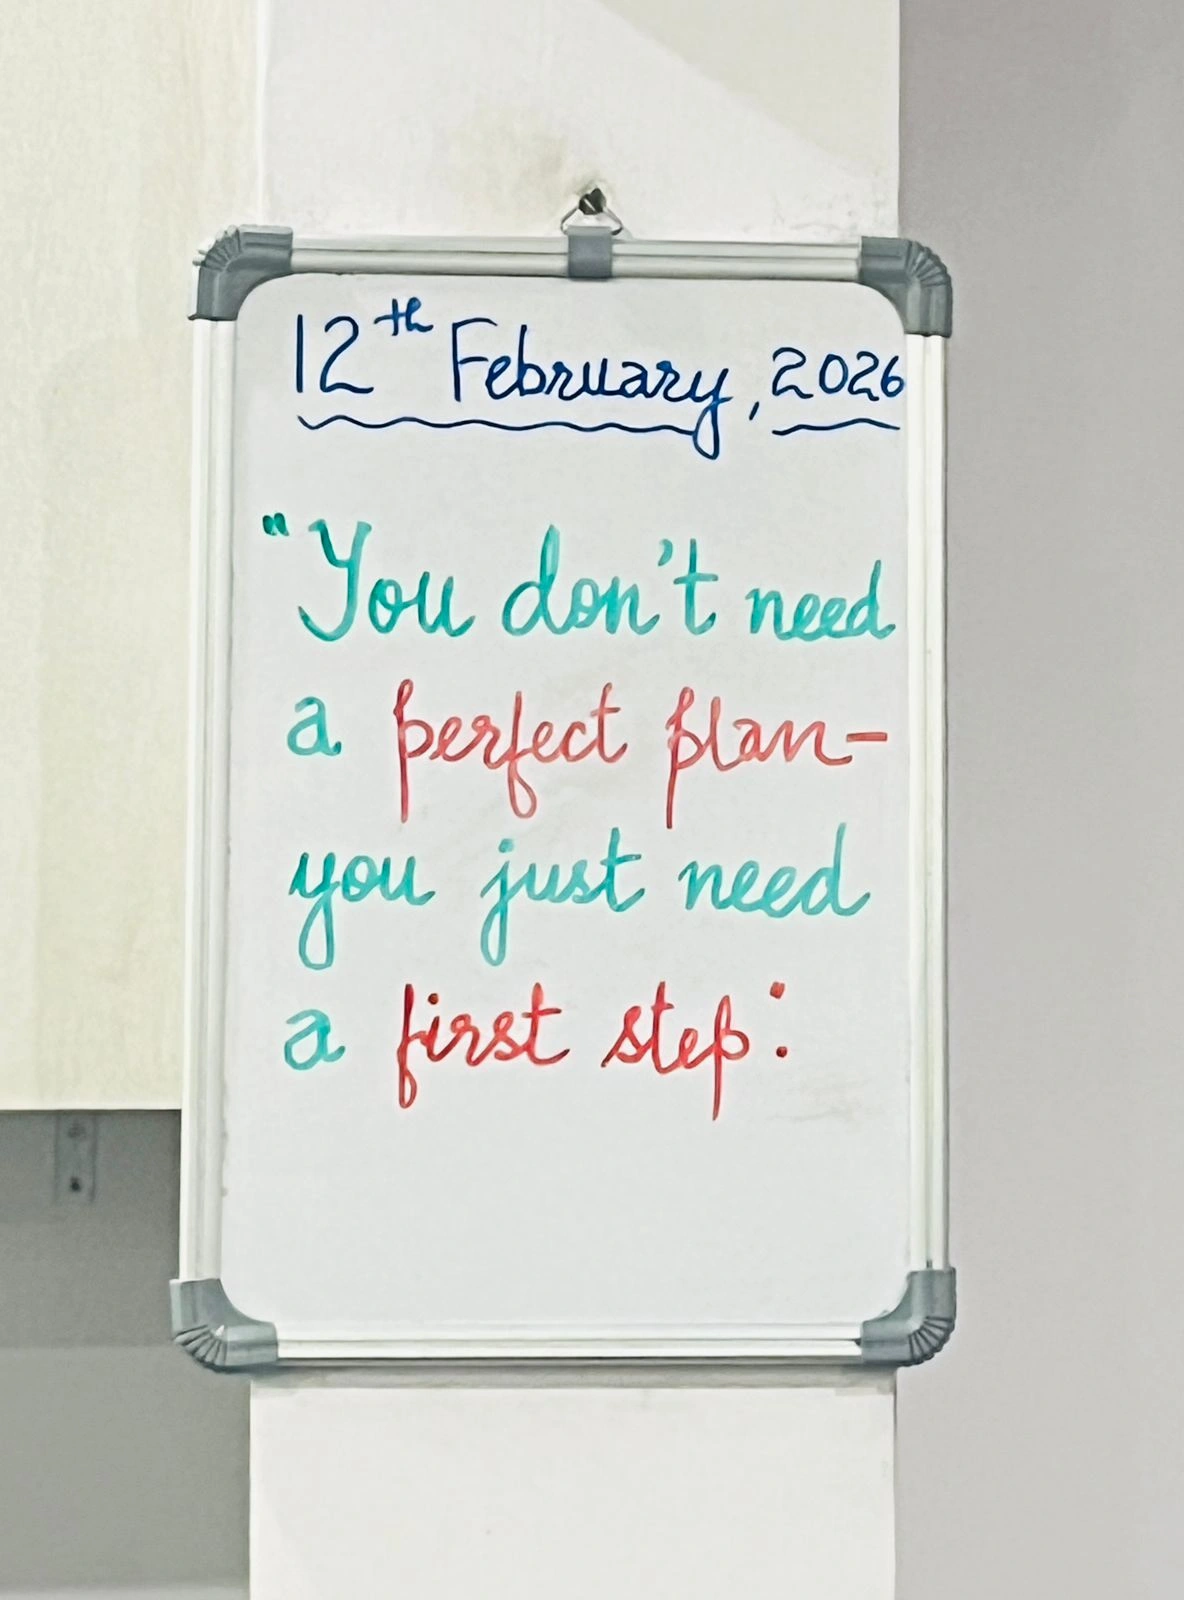 12th February, 2026
"You don't need
a perfect plan-
you just need
a first step."